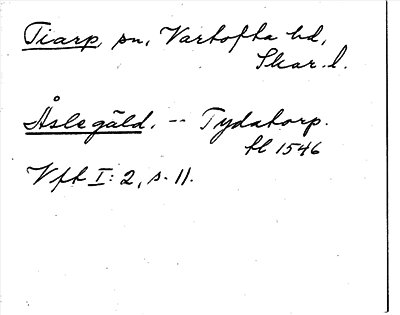 Tiarp, sn, Vartofta hd,
Skar. l.
Åsle gäld, -- Tydatorp.
fl 1546
Vft I: 2, s. 11.